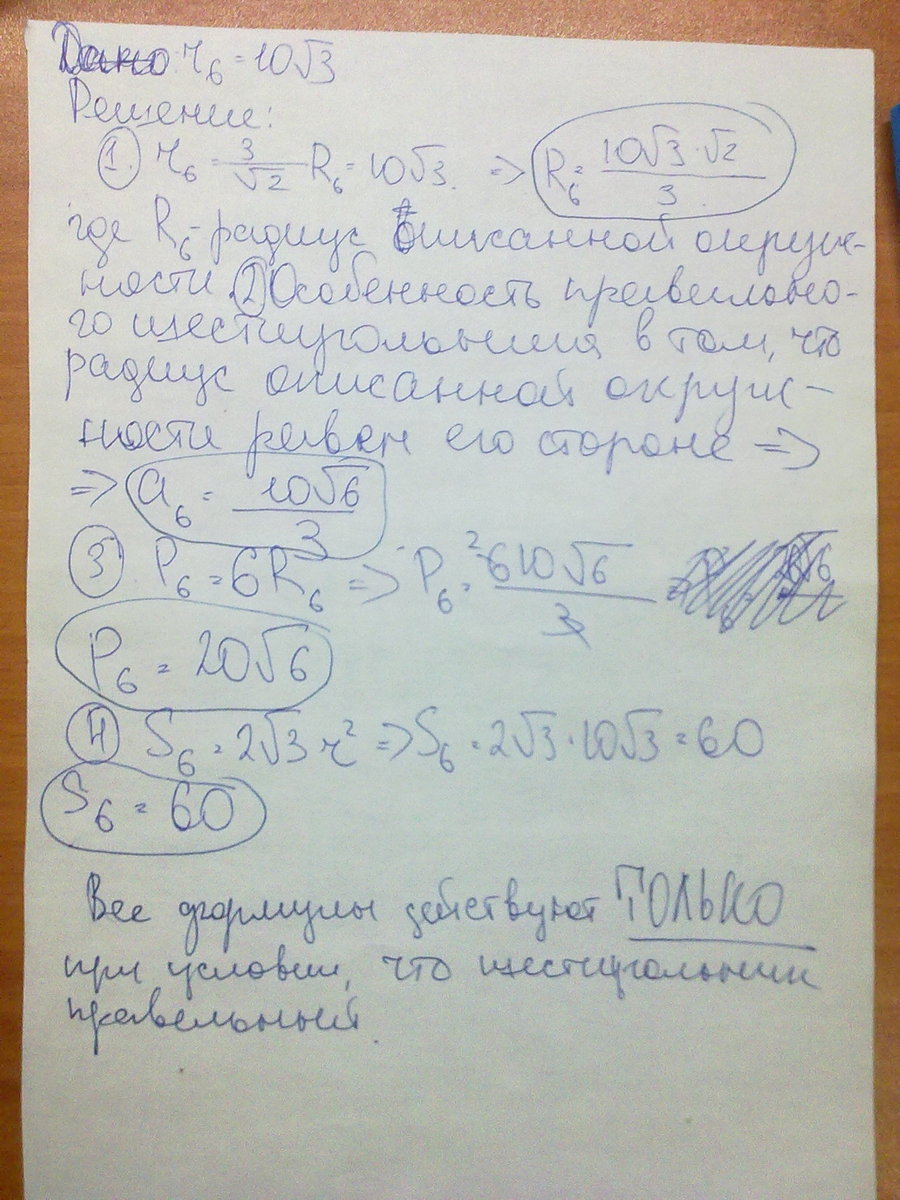 Дано r₆ = 10√3
Решение:
① r₆ = 3/√2 R₆ = 10√3 => R₆ = 10√3·√2/3
где R₆ - радиус описанной окруж-
ности. 2) Особенность правильно-
го шестиугольника в том, что
радиус описанной окруж-
ности равен его стороне =>
=> a₆ = 10√6/3
③ P₆ = 6R₆ => P₆ = 2 6 10√6/3
P₆ = 20√6
④ S₆ = 2√3 r² => S₆ = 2√3·10√3 = 60
S₆ = 60
Все формулы действуют ТОЛЬКО
при условии, что шестиугольник
правельный